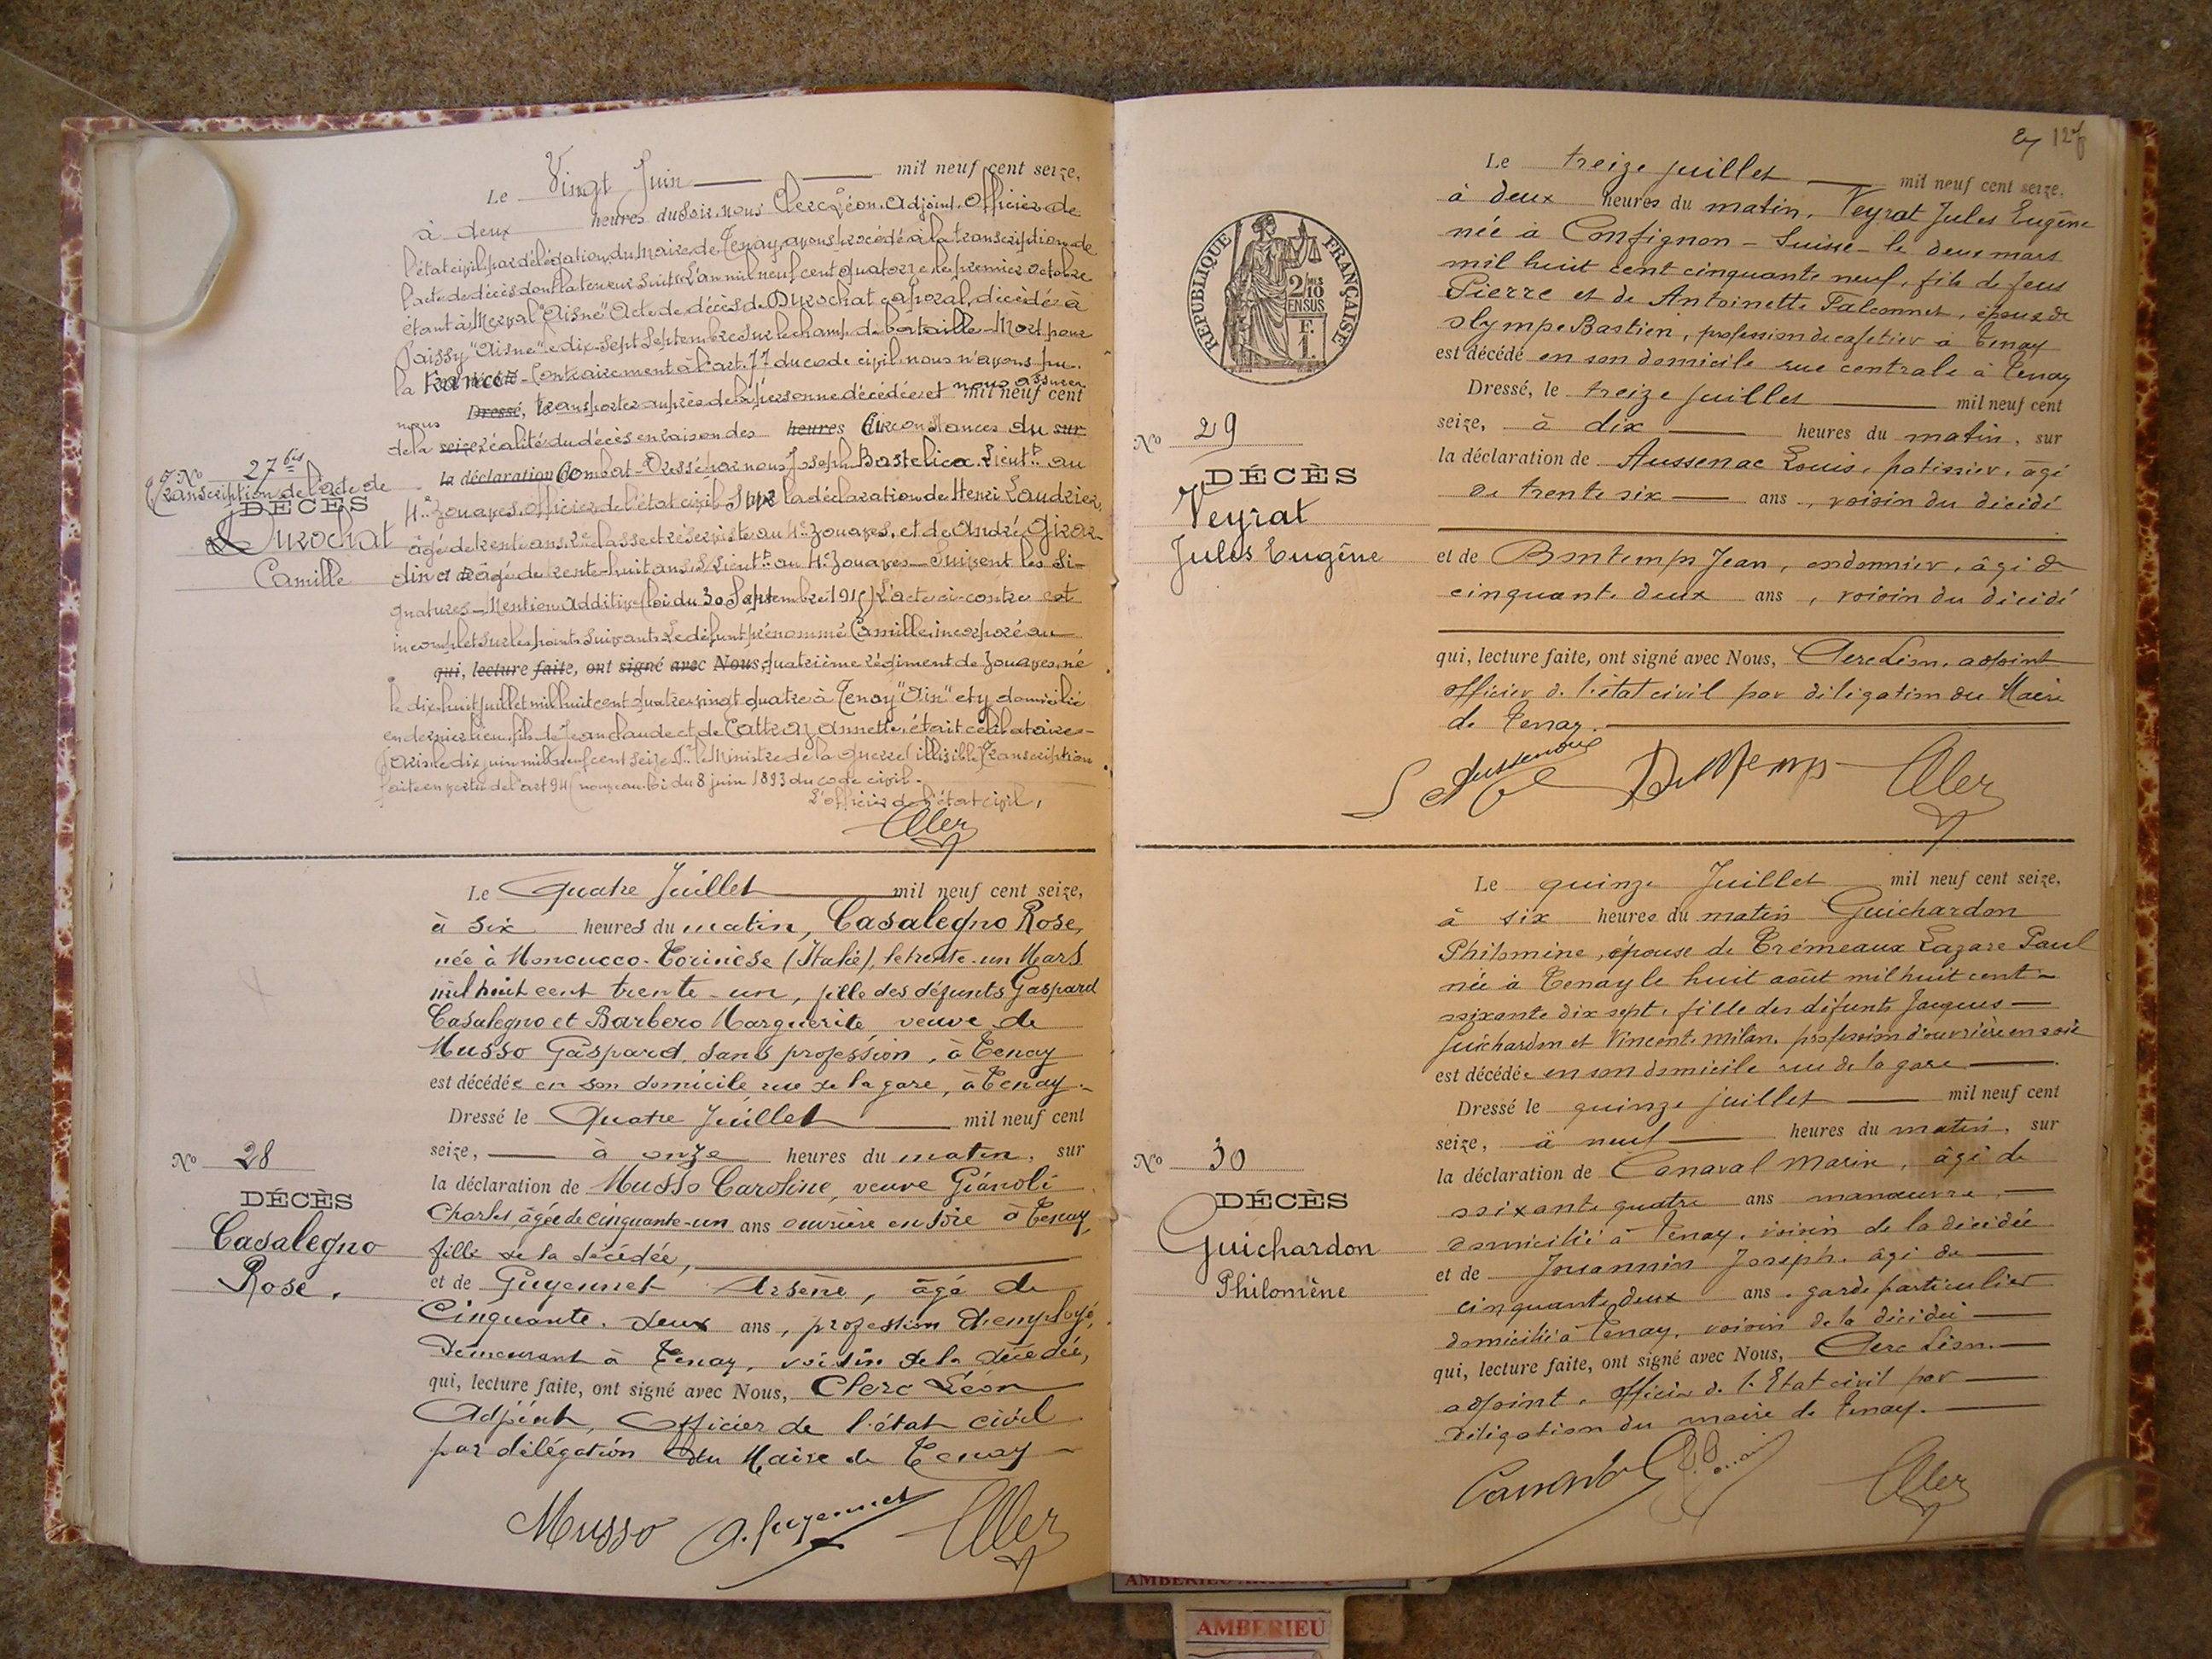 Le Vingt Juin mil neuf cent seize,
à deux heures du soir, nous Clerc Léon, Adjoint, Officier de
l'état civil par délégation du Maire de Tenay, avons procédé à la transcription de
l'acte de décès dont la teneur suit: L'an mil neuf cent quatorze, le premier octobre
étant à Merval "Aisne" Acte de décès de Durochat caporal, décédé à
Paissy "Aisne" le dix-sept Septembre sur le champ de bataille - Mort pour
la France - Contrairement à l'art. 77 du code civil nous n'avons pu
nous Dressé, transporter auprès de la personne décédée et nous assurer mil neuf cent
de la seize réalité du décès en raison des heures circonstances du sur
la déclaration Combat - Dressé par nous Joseph Bastelica. Lient. au
4e Zouaves, officier de l'état civil sur la déclaration de Henri Laudrier,
âgé de trente ans, classe réserviste au 4e Zouaves, et de André Girar-
din âgé de trente-huit ans, s/Lient. au 4e Zouaves - Suivent les si-
gnatures - Mention additive (loi du 30 Septembre 1915) L'acte ci-contre est
incomplet sur les points suivants Le défunt prénommé Camille incorporé au
qui, lecture faite, ont signé avec Nous, quatrième régiment de Zouaves, né
le dix-huit juillet mil huit cent quatre vingt quatre à Tenay "Ain" et y domicilié
en dernier lieu, fils de Jean Claude et de Cattraz Annette, était célibataire -
Paris le dix juin mil neuf cent seize Pr. le Ministre de la Guerre (illisible) Transcription
faite en vertu de l'art 94 (nouveau loi du 8 juin 1893 du code civil.
L'officier de l'état civil,
Clerc
No 27 bis
Transcription de l'acte de
DÉCÈS
Durochat
Camille
Le Quatre Juillet mil neuf cent seize,
à six heures du matin, Casalegno Rose,
née à Moncucco-Torinèse (Italie), le trente-un Mars
mil huit cent trente-un, fille des défunts Gaspard
Casalegno et Barbero Marguerite veuve de
Musso Gaspard, sans profession, à Tenay
est décédée en son domicile rue de la gare, à Tenay.
Dressé le Quatre Juillet mil neuf cent
seize, à onze heures du matin, sur
la déclaration de Musso Caroline, veuve Gianoli
Charles, âgée de cinquante-un ans ouvrière en soie à Tenay,
fille de la décédée,
et de Guyennet Arsène, âgé de
Cinquante. deux ans, profession d'employé,
Demeurant à Tenay, voisin de la décédée,
qui, lecture faite, ont signé avec Nous, Clerc Léon
Adjoint, Officier de l'état civil
par délégation du Maire de Tenay
Musso A. Guyennet Clerc
No 28
DÉCÈS
Casalegno
Rose.
127
Le treize juillet mil neuf cent seize.
à deux heures du matin, Veyrat Jules Eugène
née à Confignon - Suisse - le deux mars
mil huit cent cinquante neuf, fils de feus
Pierre et de Antoinette Falconnet, époux de
Olympe Bastien, profession de cafetier à Tenay
est décédé en son domicile rue centrale à Tenay
Dressé, le treize juillet mil neuf cent
seize, à dix heures du matin, sur
la déclaration de Aussenac Louis, patissier, âgé
de trente six ans, voisin du décédé
et de Bontemps Jean, cordonnier, âgé de
cinquante deux ans, voisin du décédé
qui, lecture faite, ont signé avec Nous, Clerc Léon, adjoint
officier de l'état civil par délégation du Maire
de Tenay.
Bontemps Clerc
REPUBLIQUE FRANÇAISE
2/10
EN SUS
F.
1.
No 29
DÉCÈS
Veyrat
Jules Eugène
Le quinze Juillet mil neuf cent seize,
à six heures du matin Guichardon
Philomine, épouse de Trémeaux Lazare Paul
née à Tenay le huit août mil huit cent
soixante dix sept, fille des défunts Jacques
Guichardon et Vincente Milan, profession d'ouvrière en soie
est décédée en son domicile rue de la gare
Dressé le quinze juillet mil neuf cent
seize, à neuf heures du matin, sur
la déclaration de Canaval Marin, âgé de
soixante quatre ans manœuvre,
domicilié à Tenay, voisin de la décédée
et de Jouannin Joseph, âgé de
cinquante deux ans, garde particulier
domicilié à Tenay, voisin de la décédée
qui, lecture faite, ont signé avec Nous, Clerc Léon.
adjoint, officier de l'Etat civil par
délégation du maire de Tenay.
Canaval Clerc
No 30
DÉCÈS
Guichardon
Philomène
AMBERIEU